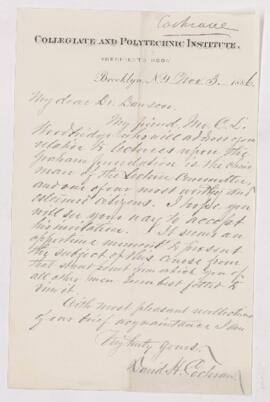 Cochrane
COLLEGIATE AND POLYTECHNIC INSTITUTE,
PRESIDENT'S ROOM
Brooklyn, N.Y. Nov. 3. 1886.
My dear Dr. Dawson.
My friend, Mr. C. L.
Woodbridge who will address you
relation to lectures upon the
Graham foundation is the chair
man of the Lecture Committee,
and one of our most worthy and
esteemed citizens. I hope you
will see your way to accept
his invitation. It seems an
opportune moment to present
the subject of this course from
that stand point from which you of
all other men are best fitted to
With most pleasant recollections
of our brief acquaintance I am
Very truly yours,
David H. Cochran